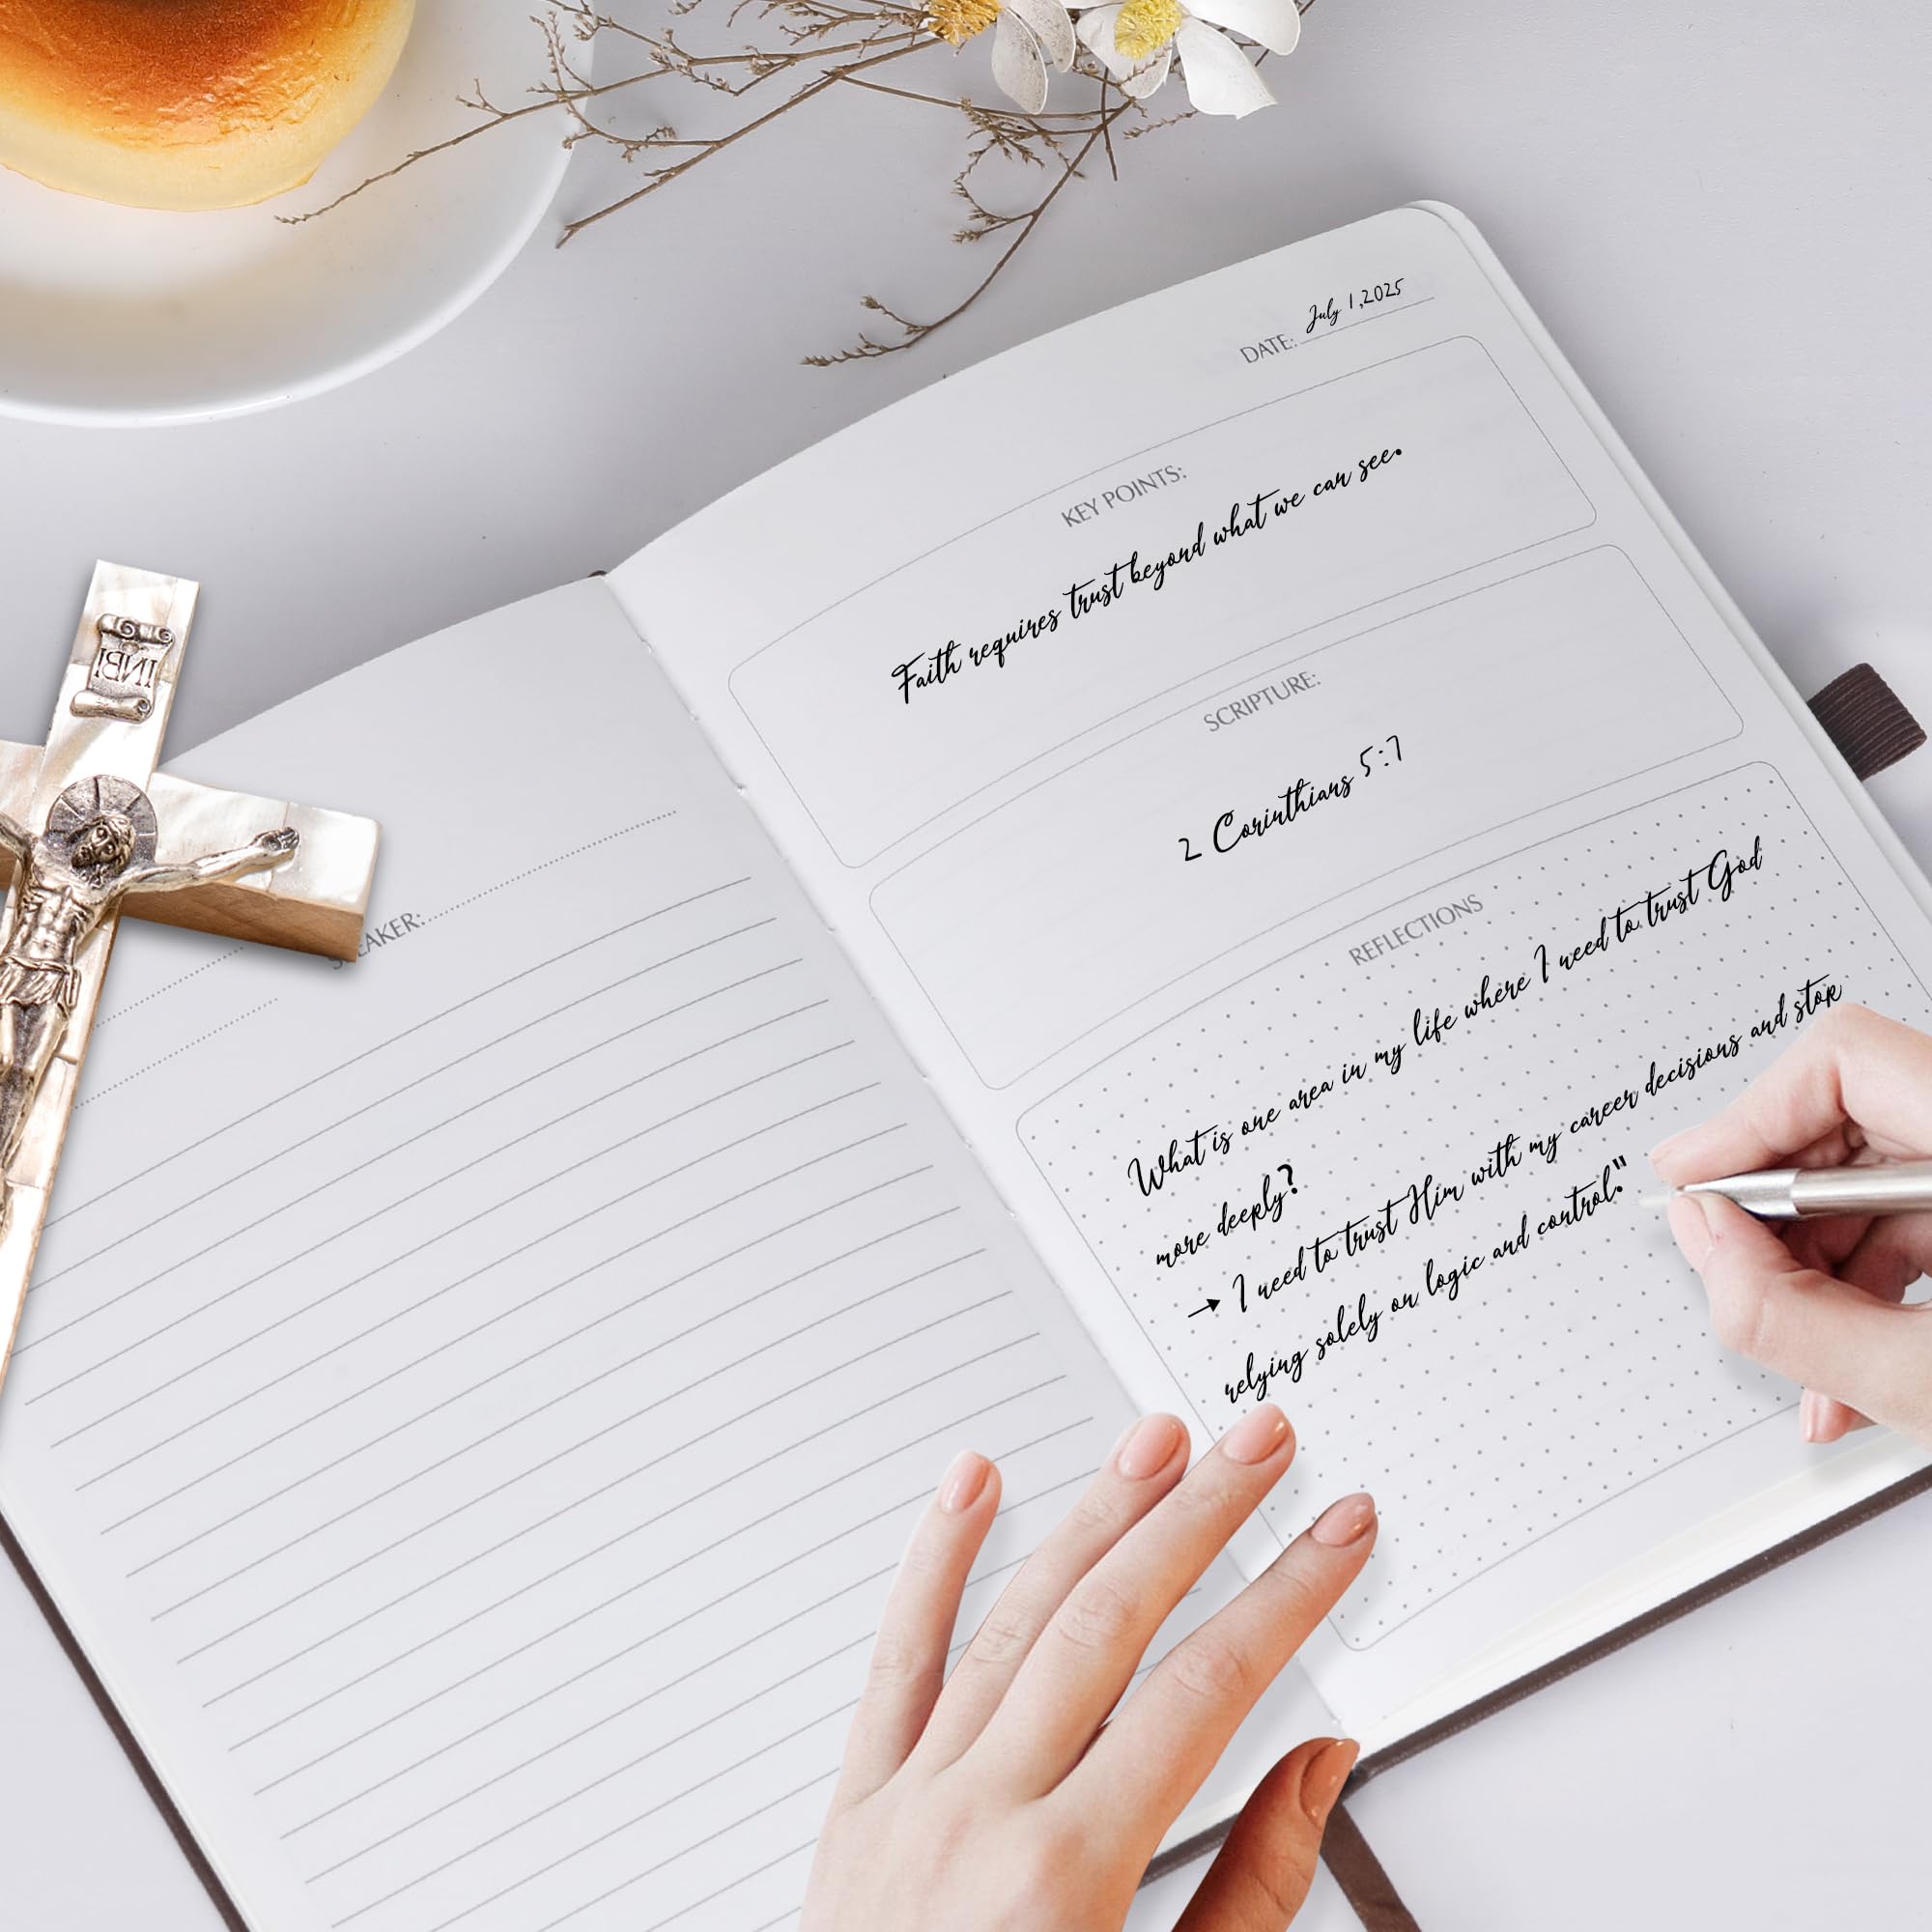 INBI
SPEAKER:
DATE: July 1,2025
KEY POINTS:
Faith requires trust beyond what we can see.
SCRIPTURE:
2 Corinthians 5:7
REFLECTIONS
What is one area in my life where I need to trust God
more deeply?
→ I need to trust Him with my career decisions and stop
relying solely on logic and control."